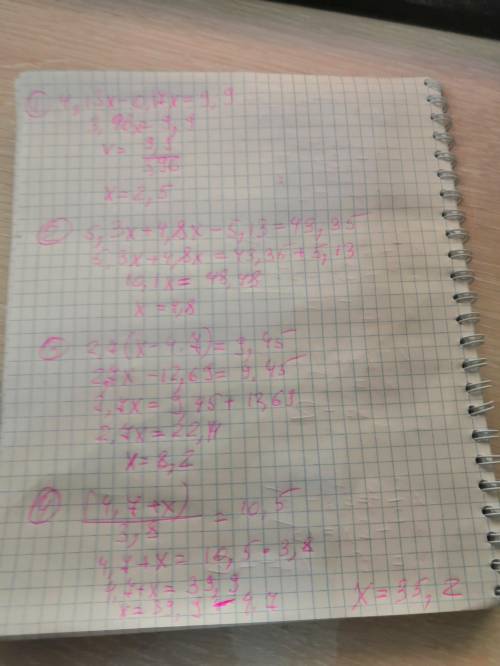 ① 4,13x-0,17x=9,9
3,96x=9,9
x= 9,9
3,96
x=2,5
② 5,3x+4,8x-5,13=43,35
5,3x+4,8x=43,35+5,13
10,1x=48,48
x=4,8
③ 2,7(x-4,7)=9,45
2,7x-12,69=9,45
2,7x=9,45+12,69
2,7x=22,14
x=8,2
④ (4,7+x)
3,8
= 10,5
4,7+x=10,5·3,8
4,7+x=39,9
x=39,9-4,7
x=35,2